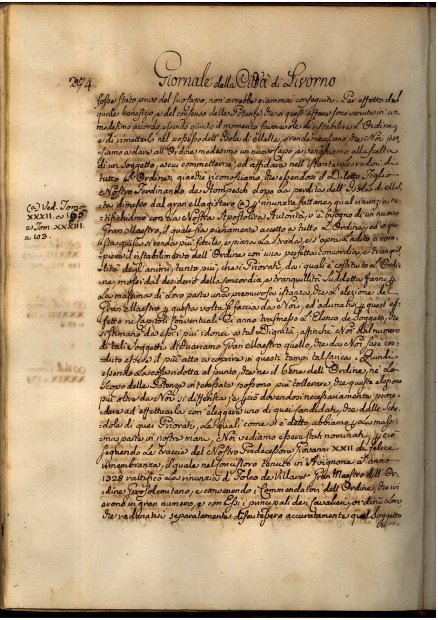 274 Giornale della Città di Livorno
fosse stato privo del suo capo, non avrebbe giammai conseguiti. Per effetto del
quale beneficio, e del consenso delle Potenze, che a quest'effetto sono venute in un
medesimo accordo, essendo giunto il momento favorevole di ristabilire l'Ordine,
e di rimetterlo nel possesso dell'Isola di Malta, si rende necessario, che Noi pen-
siamo a dare all'Ordine medesimo un nuovo Capo, e venghiamo alla scelta
di un Soggetto, a cui commettere, ed affidare nell'istante le redini di
tutto l'Ordine; giacchè riconosciamo, che essendosi il Diletto Figlio
Nostro Ferdinando de Hompesch dopo la perdita dell'Isola di Mal-
ta, dimesso dal gran Magistero (a) rinunzie fattane, qual rinunzia ra-
tifichiamo con la Nostra Apostolica Autorità, v'è bisogno di un nuovo
Gran Maestro, il quale sia pienamente accetto a tutto l'Ordine, ed a que-
sto si renda più facile, e piana la strada, e s'apra l'adito a com-
piere il ristabilimento dell'Ordine con una perfetta concordia, e tranquil-
lità degli animi; tanto più che i Priorati, dai quali è costituito l'Ordi-
ne, mossi dal desiderio della concordia, e tranquillità suddetta fanno
la massima di loro parte una premurosa istanza, che l'elezione del
Gran Maestro per questa volta si faccia da Noi, ed adunatisi a quest'ef-
fetto ne' rispettivi Priorati, Ci anno trasmesso l'Elenco de' Soggetti, che
si stimano da essi i più idonei a tal Dignità, affinchè Noi dal numero
di tali Soggetti dichiariamo Gran Maestro quello, che da Noi sarà cre-
duto essere il più atto a coprire in questi tempi tal carica. Quindi
essendo la cosa ridotta al punto, che nè il bene dell'Ordine, nè lo
scopo delle Potenze interessate possono più tollerare, che questa elezione
più oltre da Noi si differisca, e però dovendosi necessariamente proce-
dere ad effettuarla con eleggere uno di quei candidati, che dalle Sche-
dole di quei Priorati, le quali come si è detto, abbiamo per la mas-
sima parte in nostre mani, Noi vediamo essere stati nominati, perciò
seguendo le traccie del Nostro Predecessore Giovanni XXII di felice
rimembranza, il quale nel Concistoro tenuto in Avignone l'anno
1328 ratificò la rinunzia di Folco de Villaret Gran Maestro dell'Or-
dine Gerosolimitano, e convenendo i Commendatori dell'Ordine, che vi
erano in gran numero, e con essi i principali de' Cavalieri, ordinò loro
che radunatisi separatamente discutessero accuratamente qual Soggetto
(a) Ved. Tomo
XXXII. a 195
e Tom. XXXIII.
a 103.